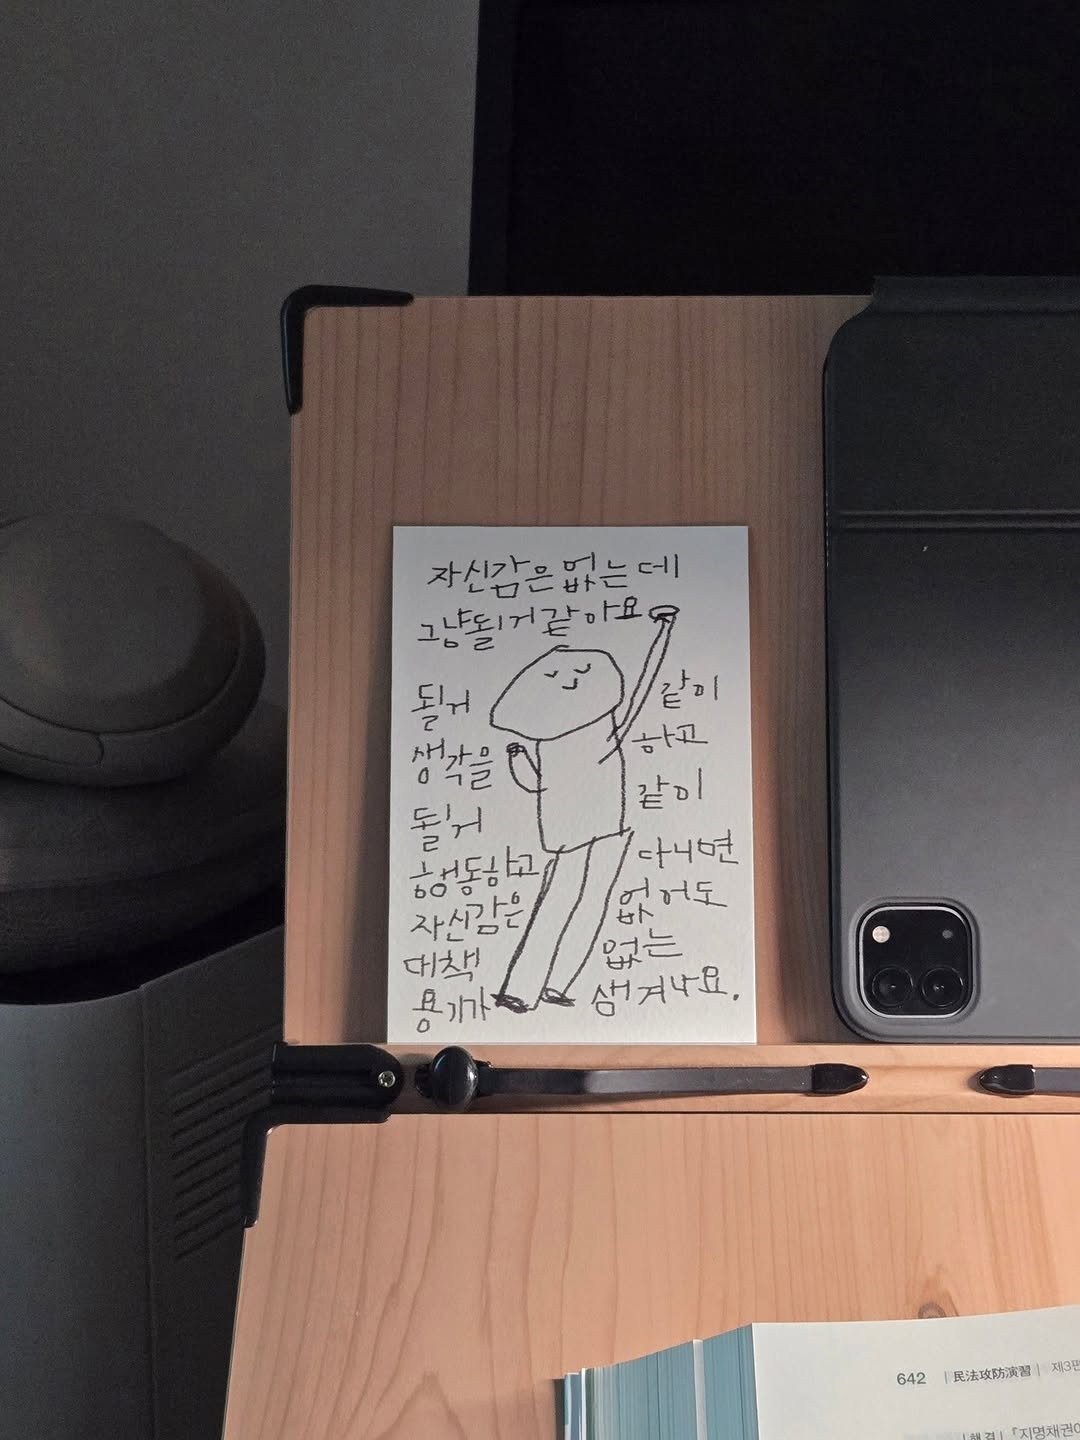 자신감은 없는데
그냥 될 거 같아요
될 거
생각을
될 거
행동하고
자신감은
대책
용기가
같이
하고
같이
다니면
없어도
없는
생겨나요.
642 | 民法攻防演習 | 제3편
| 해결 | 「지명채권이